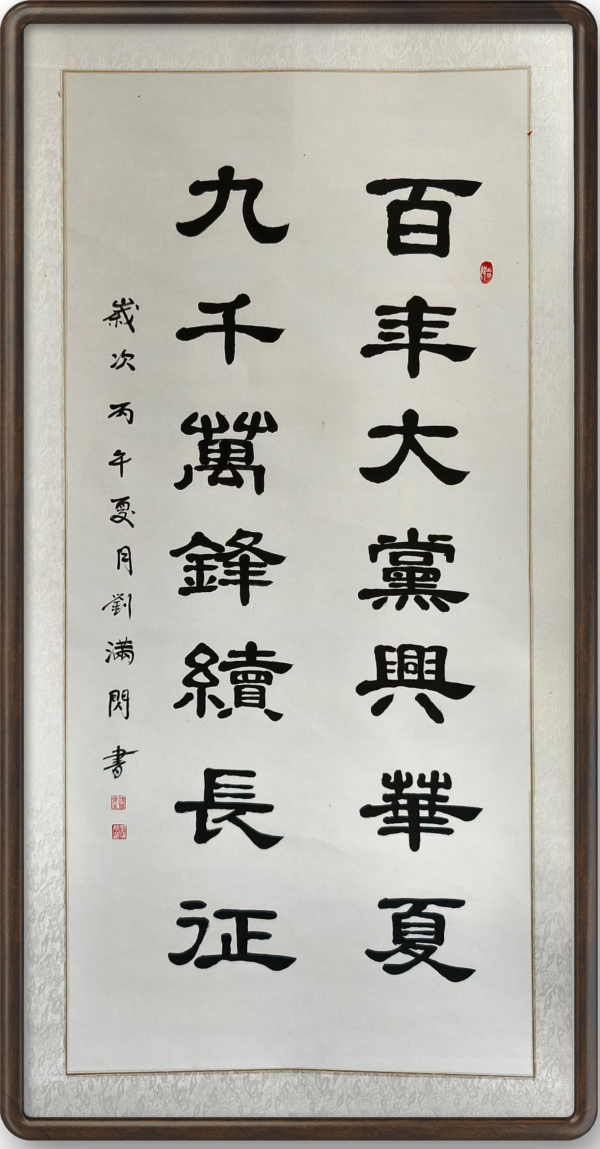 百年大黨興華夏
九千萬鋒續長征
歲次丙午夏月劉滿閃書